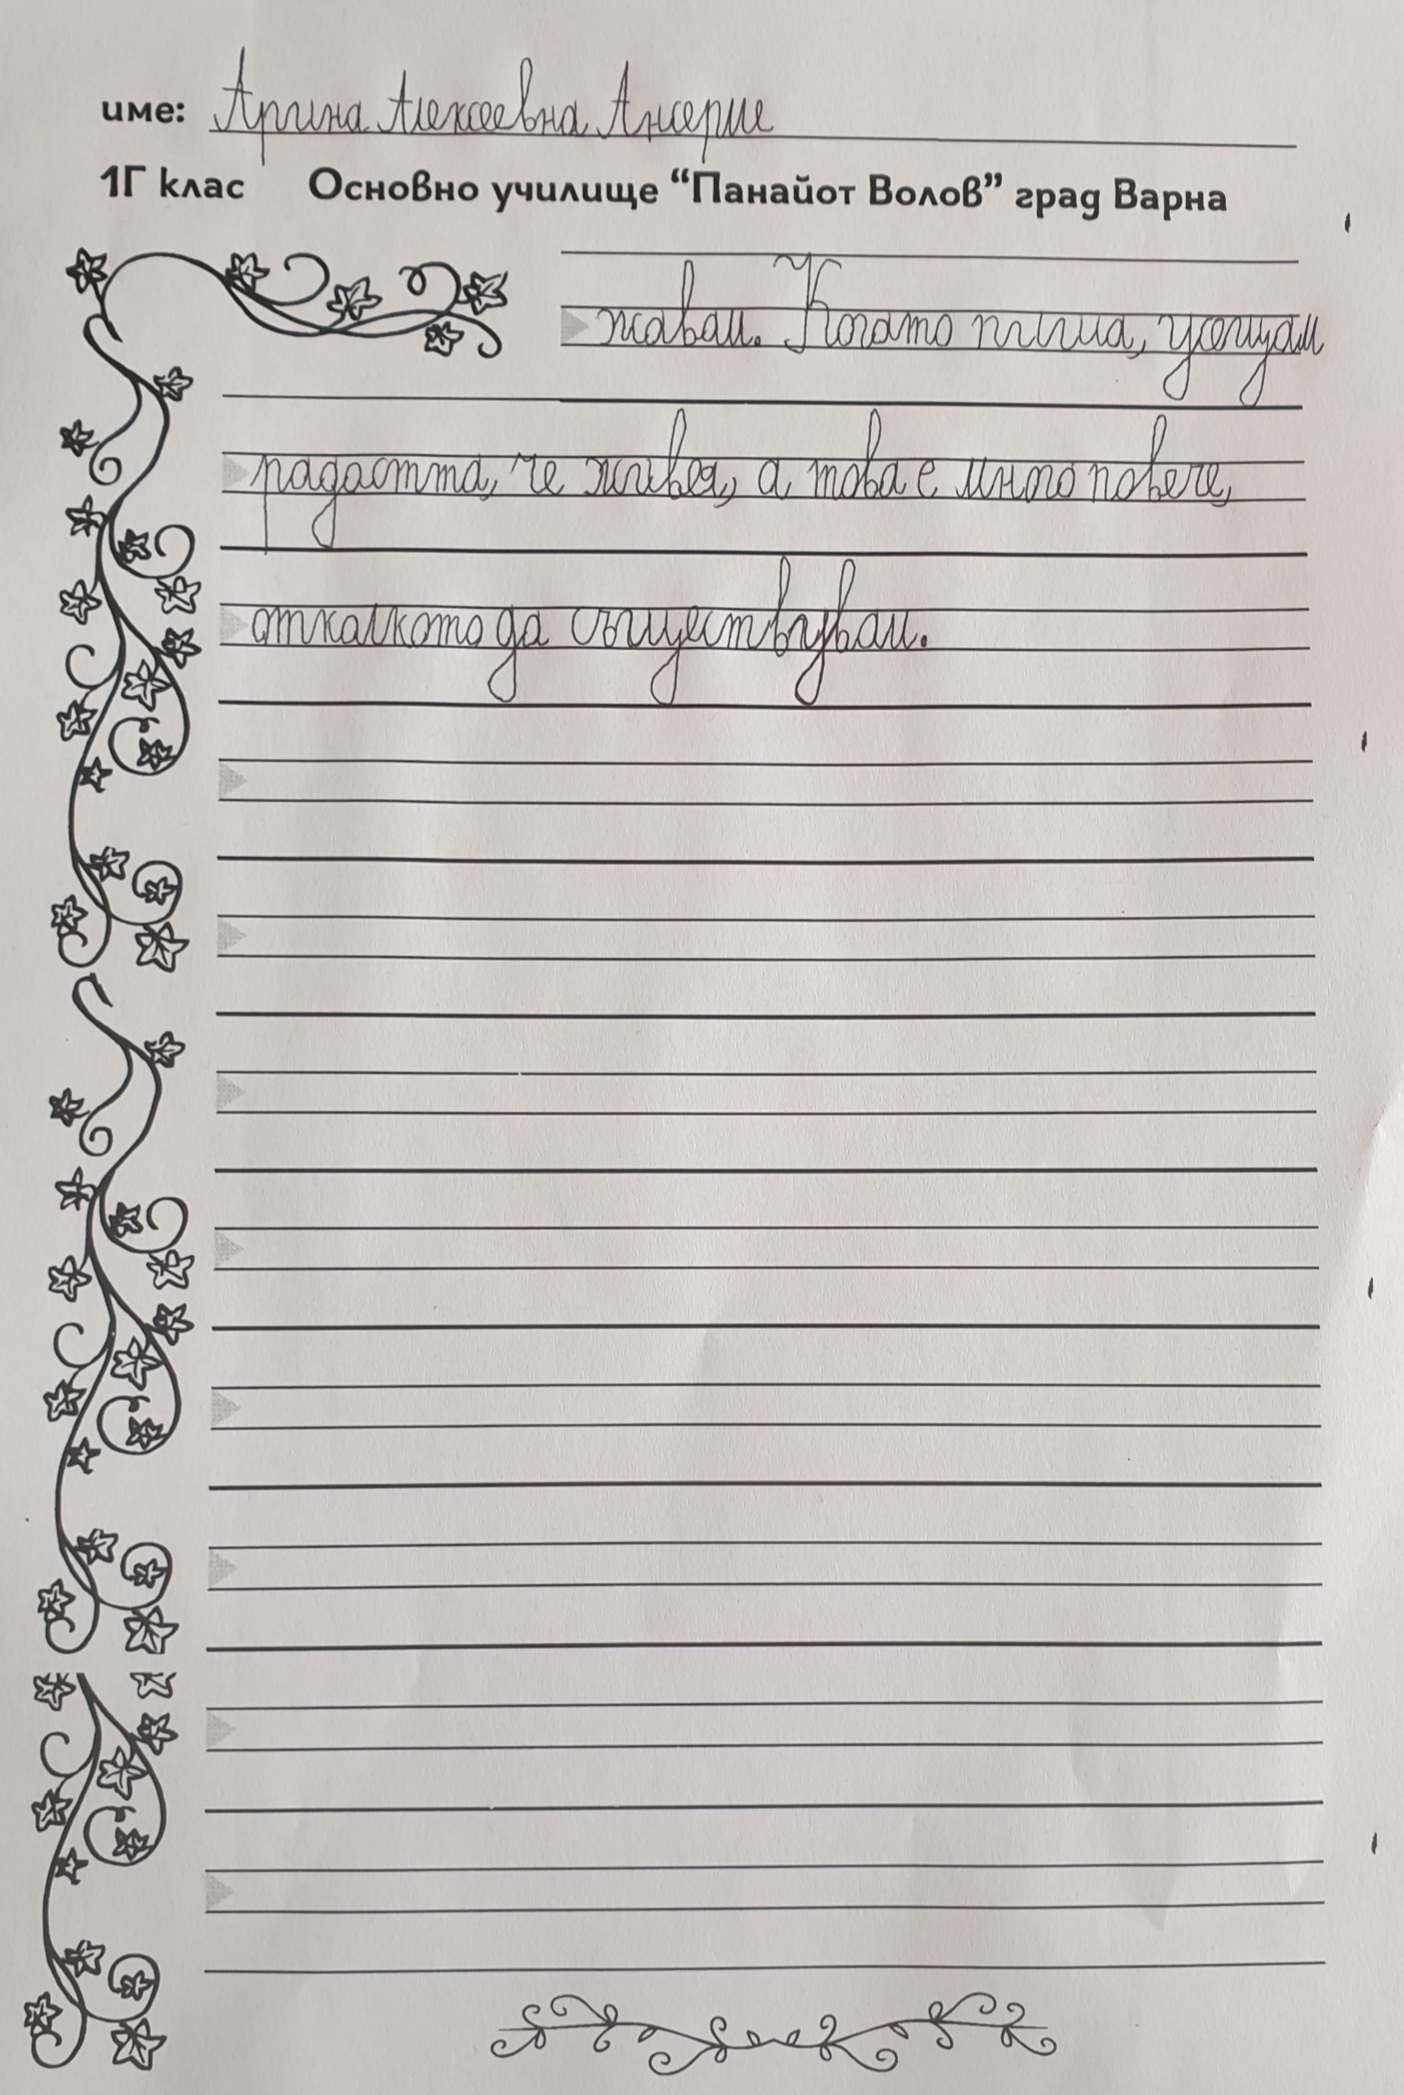 име: Арина Алексеевна Ансерие
1Г клас Основно училище “Панайот Волов” град Варна
жавам. Когато пиша, усещам
радостта, че живея, а това е много повече,
отколкото да съществувам.